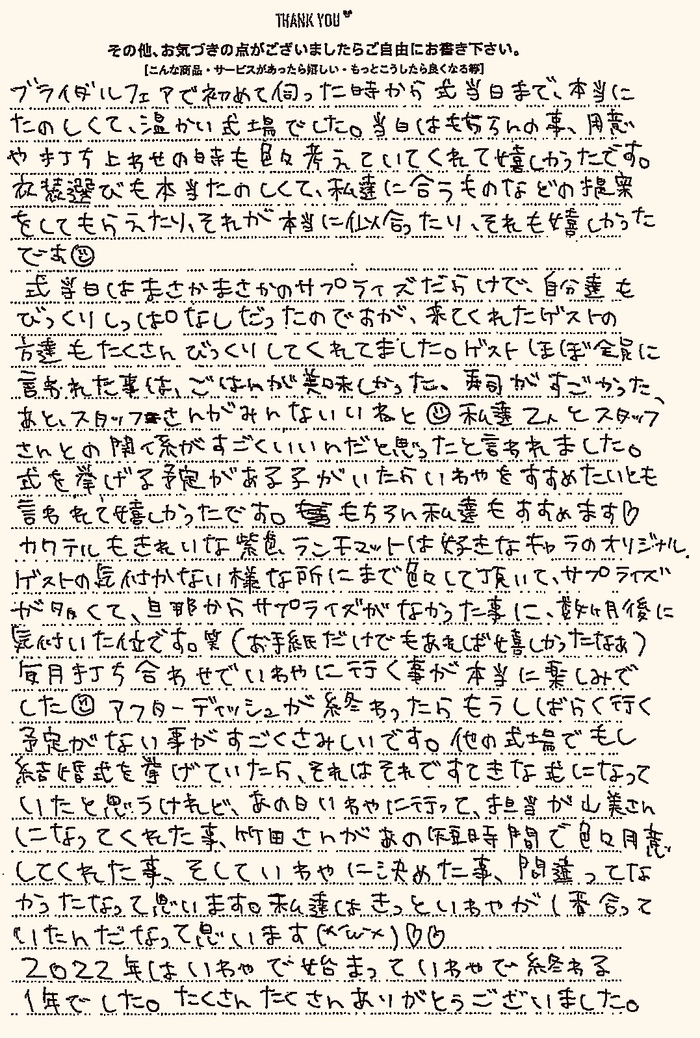 THANK YOU♥
その他、お気づきの点がございましたらご自由にお書き下さい。
[こんな商品・サービスがあったら嬉しい・もっとこうしたら良くなる等]
ブライダルフェアで初めて伺った時から式当日まで、本当に
たのしくて、温かい式場でした。当日はもちろんの事、用意
や打ち上わせの時も色々考えていてくれて嬉しかったです。
衣装選びも本当たのしくて、私達に合うものなどの提案
をしてもらえたり、それが本当に似合ったり、それも嬉しかった
です☺
式当日はまさかまさかのサプライズだらけで、自分達も
びっくりしっぱなしだったのですが、来てくれたゲストの
方達もたくさんびっくりしてくれてました。ゲストほぼ全員に
言われた事は、ごはんが美味しかった、寿司がすごかった、
あと、スタッフさんがみんないいねと☺私達2人とスタッフ
さんとの関係がすごくいいんだと思ったと言われました。
式を挙げる予定がある子がいたらいわやをすすめたいとも
言われて嬉しかったです。もちろん私達もすすめます♡
カクテルもきれいな紫色、ランチマットは好きなキャラのオリジナル。
ゲストの気付かない様な所にまで色々して頂いて、サプライズ
が多くて、旦那からサプライズがなかった事に、数ヶ月後に
気付いた位です。笑(お手紙だけでもあれば嬉しかったなぁ)
毎月打ち合わせでいわやに行く事が本当に楽しみで
した☺アフターディッシュが終わったらもうしばらく行く
予定がない事がすごくさみしいです。他の式場でもし
結婚式を挙げていたら、それはそれですてきな式になって
いたと思うけれど、あの日いわやに行って、担当が山美さん
になってくれた事、竹田さんがあの短時間で色々用意
してくれた事、そしていわやに決めた事、間違ってな
かったなって思います。私達はきっといわやが1番合って
いたんだなって思います(*´ω`*)♡♡
2022年はいわやで始まっていわやで終わる
1年でした。たくさんたくさんありがとうございました。